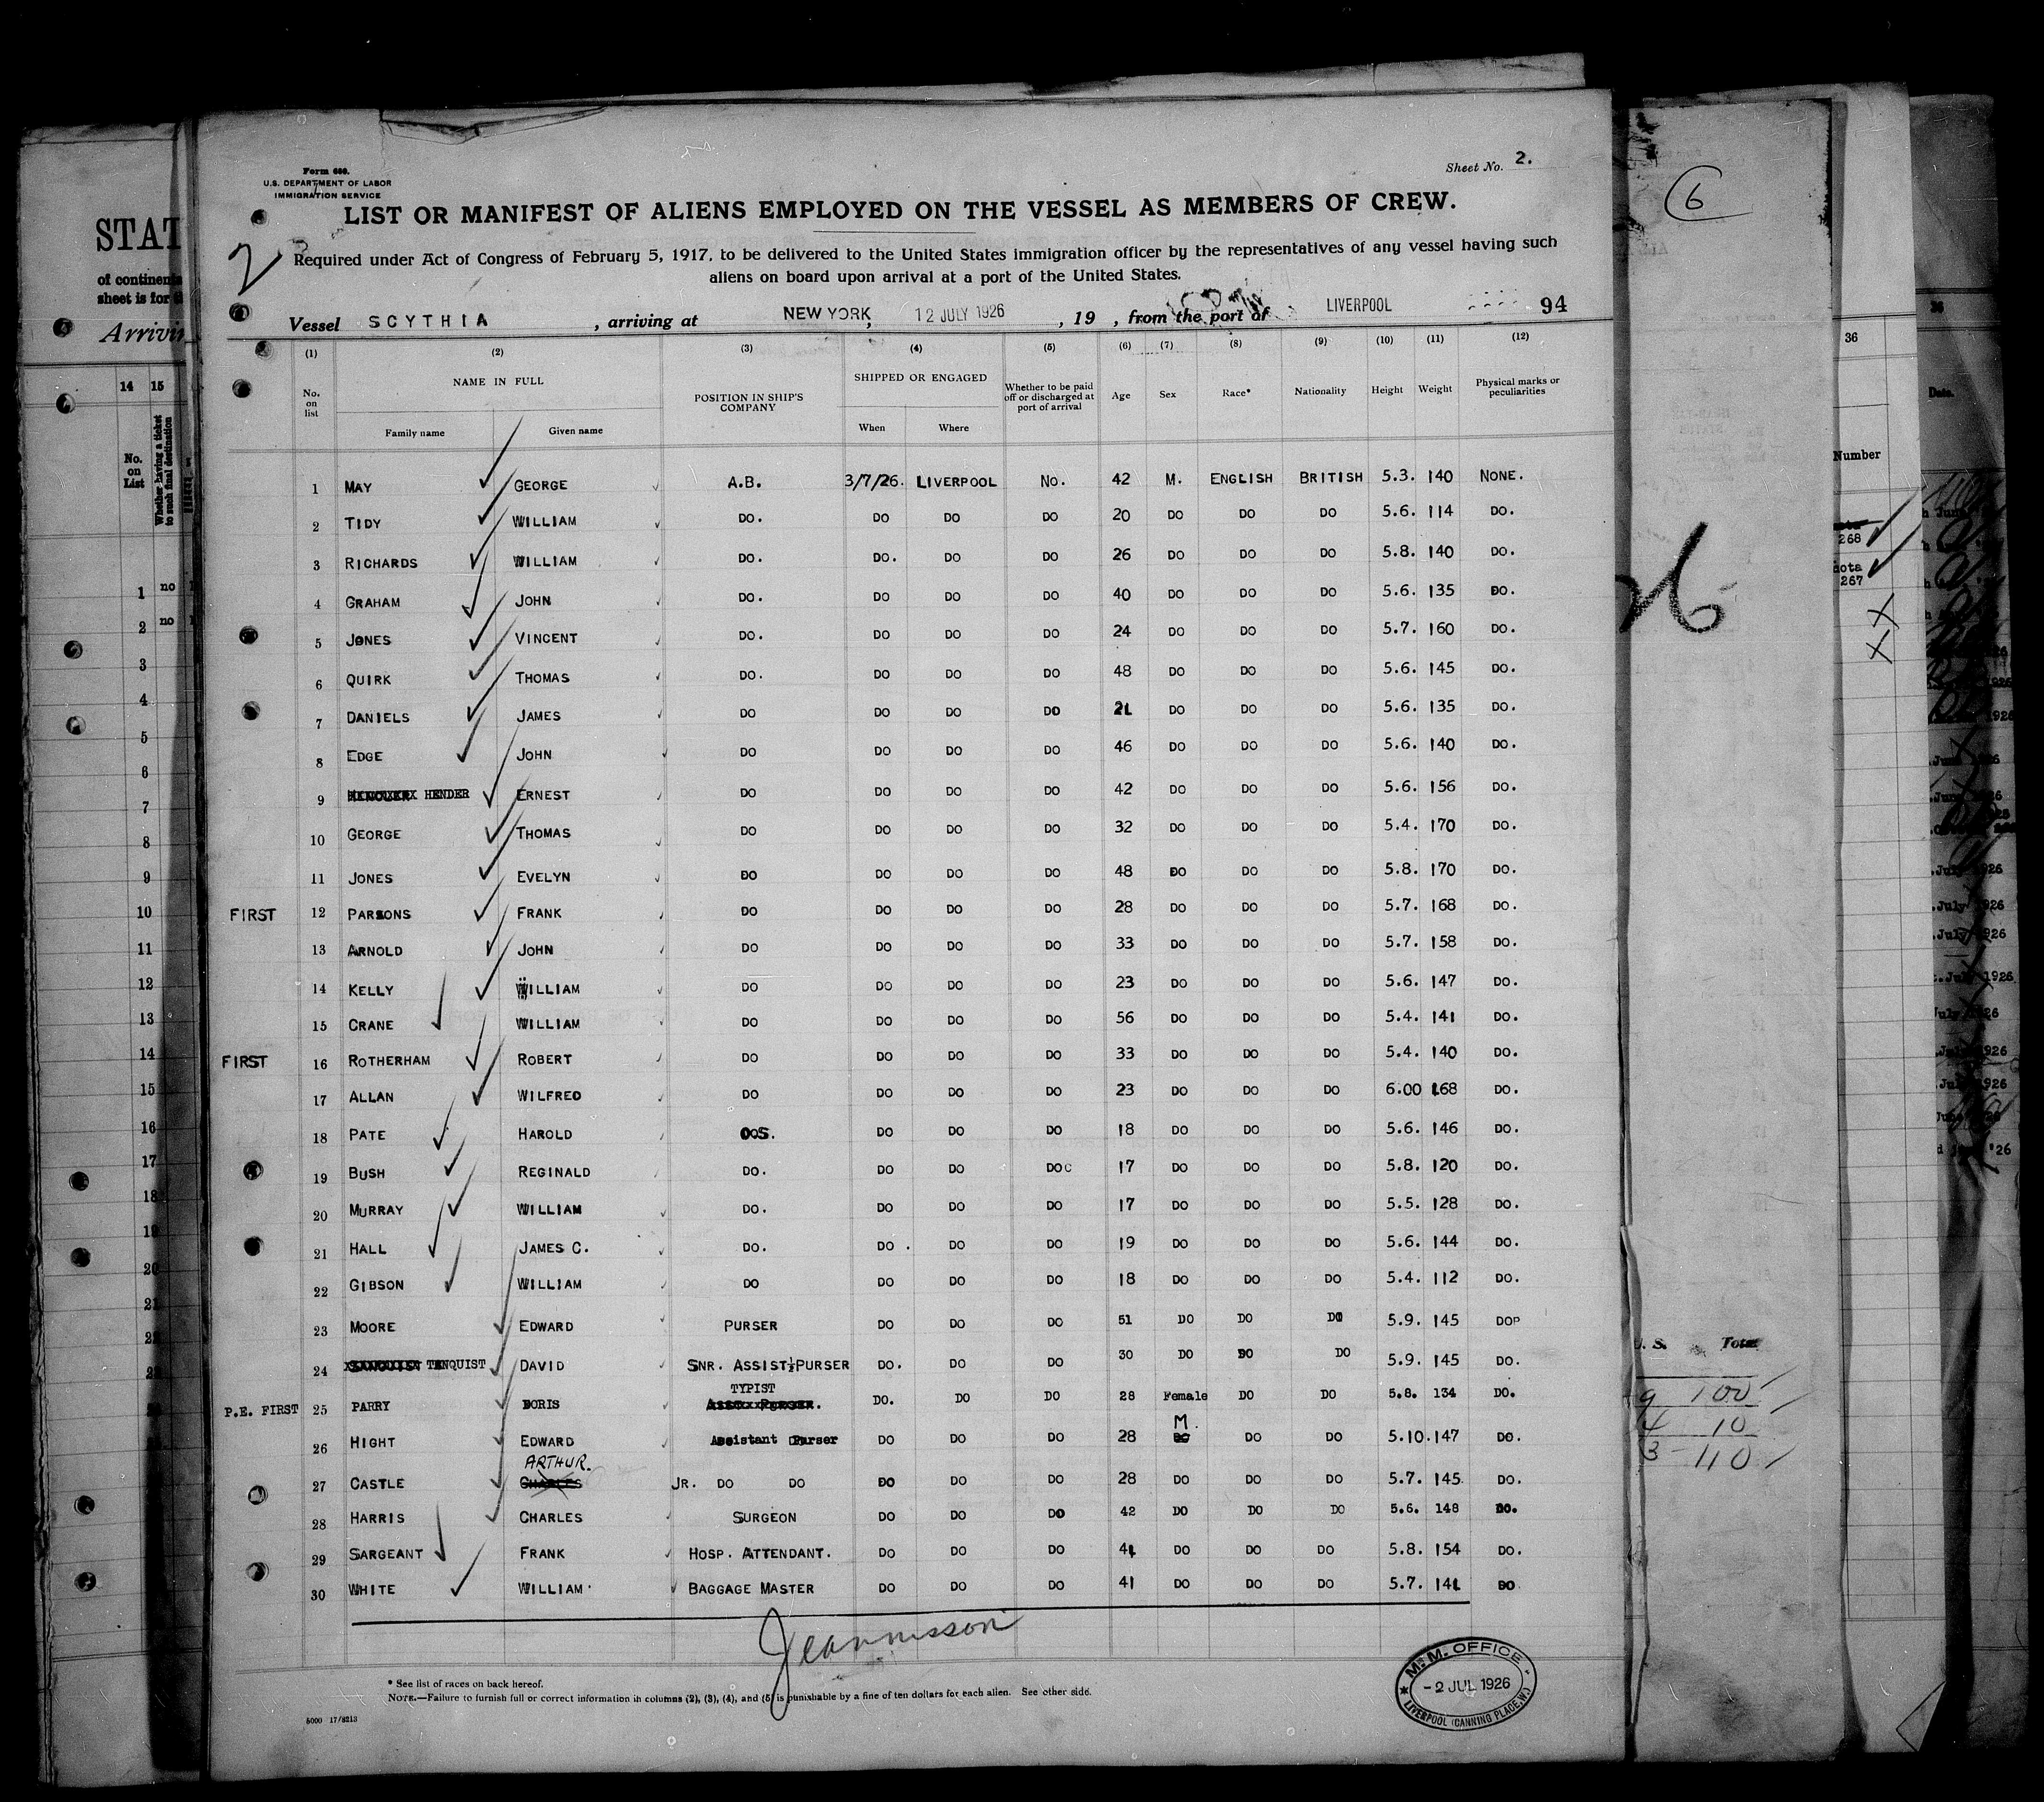 Form 680.
U.S. DEPARTMENT OF LABOR
IMMIGRATION SERVICE
Sheet No. 2.
LIST OR MANIFEST OF ALIENS EMPLOYED ON THE VESSEL AS MEMBERS OF CREW.
2
Required under Act of Congress of February 5, 1917, to be delivered to the United States immigration officer by the representatives of any vessel having such
aliens on board upon arrival at a port of the United States.
Vessel SCYTHIA, arriving at NEW YORK, 12 JULY 1926, 19 , from the port of LIVERPOOL 94
(1) (2) (3) (4) (5) (6) (7) (8) (9) (10) (11) (12)
No. on list NAME IN FULL Family name Given name POSITION IN SHIP'S COMPANY SHIPPED OR ENGAGED When Where Whether to be paid off or discharged at port of arrival Age Sex Race* Nationality Height Weight Physical marks or peculiarities
1 MAY GEORGE A.B. 3/7/26. LIVERPOOL No. 42 M. ENGLISH BRITISH 5.3. 140 NONE.
2 TIDY WILLIAM DO. DO DO DO 20 DO DO DO 5.6. 114 DO.
3 RICHARDS WILLIAM DO. DO. DO DO 26 DO DO DO 5.8. 140 DO.
4 GRAHAM JOHN DO. DO DO DO 40 DO DO DO 5.6. 135 DO.
5 JONES VINCENT DO. DO DO DO 24 DO DO DO 5.7. 160 DO.
6 QUIRK THOMAS DO. DO DO DO 48 DO DO DO 5.6. 145 DO.
7 DANIELS JAMES DO DO DO DO 21 DO DO DO 5.6. 135 DO.
8 EDGE JOHN DO DO DO DO 46 DO DO DO 5.6. 140 DO.
9 HENDER ERNEST DO DO DO DO 42 DO DO DO 5.6. 156 DO.
10 GEORGE THOMAS DO DO DO DO 32 DO DO DO 5.4. 170 DO.
11 JONES EVELYN DO DO DO DO 48 DO DO DO 5.8. 170 DO.
FIRST 12 PARSONS FRANK DO DO DO DO 28 DO DO DO 5.7. 168 DO.
13 ARNOLD JOHN DO DO DO DO 33 DO DO DO 5.7. 158 DO.
14 KELLY WILLIAM DO DO DO DO 23 DO DO DO 5.6. 147 DO.
15 CRANE WILLIAM DO DO DO DO 56 DO DO DO 5.4. 141 DO.
FIRST 16 ROTHERHAM ROBERT DO DO DO DO 33 DO DO DO 5.4. 140 DO.
17 ALLAN WILFRED DO DO DO DO 23 DO DO DO 6.00 168 DO.
18 PATE HAROLD O.S. DO DO DO 18 DO DO DO 5.6. 146 DO.
19 BUSH REGINALD DO. DO DO DO 17 DO DO DO 5.8. 120 DO.
20 MURRAY WILLIAM DO. DO DO DO 17 DO DO DO 5.5. 128 DO.
21 HALL JAMES C. DO. DO . DO DO 19 DO DO DO 5.6. 144 DO.
22 GIBSON WILLIAM DO DO DO DO 18 DO DO DO 5.4. 112 DO.
23 MOORE EDWARD PURSER DO DO DO 51 DO DO DO 5.9. 145 DO
24 TENQUIST DAVID SNR. ASSIST. PURSER DO. DO DO 30 DO DO DO 5.9. 145 DO.
P.E. FIRST 25 PARRY DORIS TYPIST DO. DO DO 28 Female DO DO 5.8. 134 DO.
26 HIGHT EDWARD Assistant Purser DO DO DO 28 M. DO DO 5.10. 147 DO.
27 CASTLE ARTHUR. CHARLES JR. DO DO DO DO DO 28 DO DO DO 5.7. 145 DO.
28 HARRIS CHARLES SURGEON DO DO DO 42 DO DO DO 5.6. 148 DO.
29 SARGEANT FRANK HOSP. ATTENDANT. DO DO DO 41 DO DO DO 5.8. 154 DO.
30 WHITE WILLIAM BAGGAGE MASTER DO DO DO 41 DO DO DO 5.7. 141 DO
* See list of races on back hereof.
NOTE.—Failure to furnish full or correct information in columns (2), (3), (4), and (5) is punishable by a fine of ten dollars for each alien. See other side.
5000 17/8213
M.M. OFFICE
-2 JUL 1926
LIVERPOOL (CANNING PLACE, W.)
STAT
of continen
sheet is for
Arrivin
14 15
No. on List
Whether having a ticket to such final destination
1 no
2 no
3
4
5
6
7
8
9
10
11
12
13
14
15
16
17
18
19
20
21
22
23
6
26
Total
100
10
110
36
Number
268
267
36
Date.